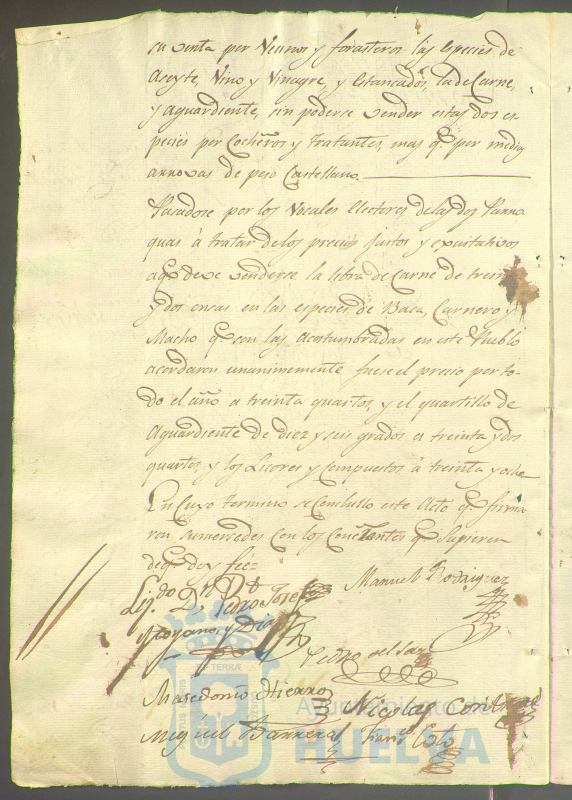 su venta por Vecinos y forasteros las Especies de
Aceyte, Vino y Vinagre, y estancados, la de Carne,
y aguardiente, sin poderse vender estas dos es
pecies por Cocheros y tratantes, mas qe. por medias
arrovas de peso Castellano.
Pasadose por los Vocales Electores de las dos Parro
quias á tratar de los precios justos y equitativos
a qe. deve venderse la libra de Carne de trein
y dos onzas en las especies de Baca, Carnero y
Macho qe. son las acostumbradas en este Pueblo
acordaron unanimemente fuese el precio por to
do el año a treinta quartos, y el quartillo de
Aguardiente de diez y seis grados a treinta y dos
quartos, y los Licores y compuestos á treinta y ocho
En cuyo termino se conclullo este Acto qe. firma
ron sus mercedes con los Concurrentes qe. supieren
de qe. doy fee=
Manuel Rodriguez
Lizdo. Dn. Pedro Jose
y Dias
Pedro del
Macedonio Hierro
Nicolas
Miguel Barrera
Ayuntamiento de
HUELVA
TERRÆ